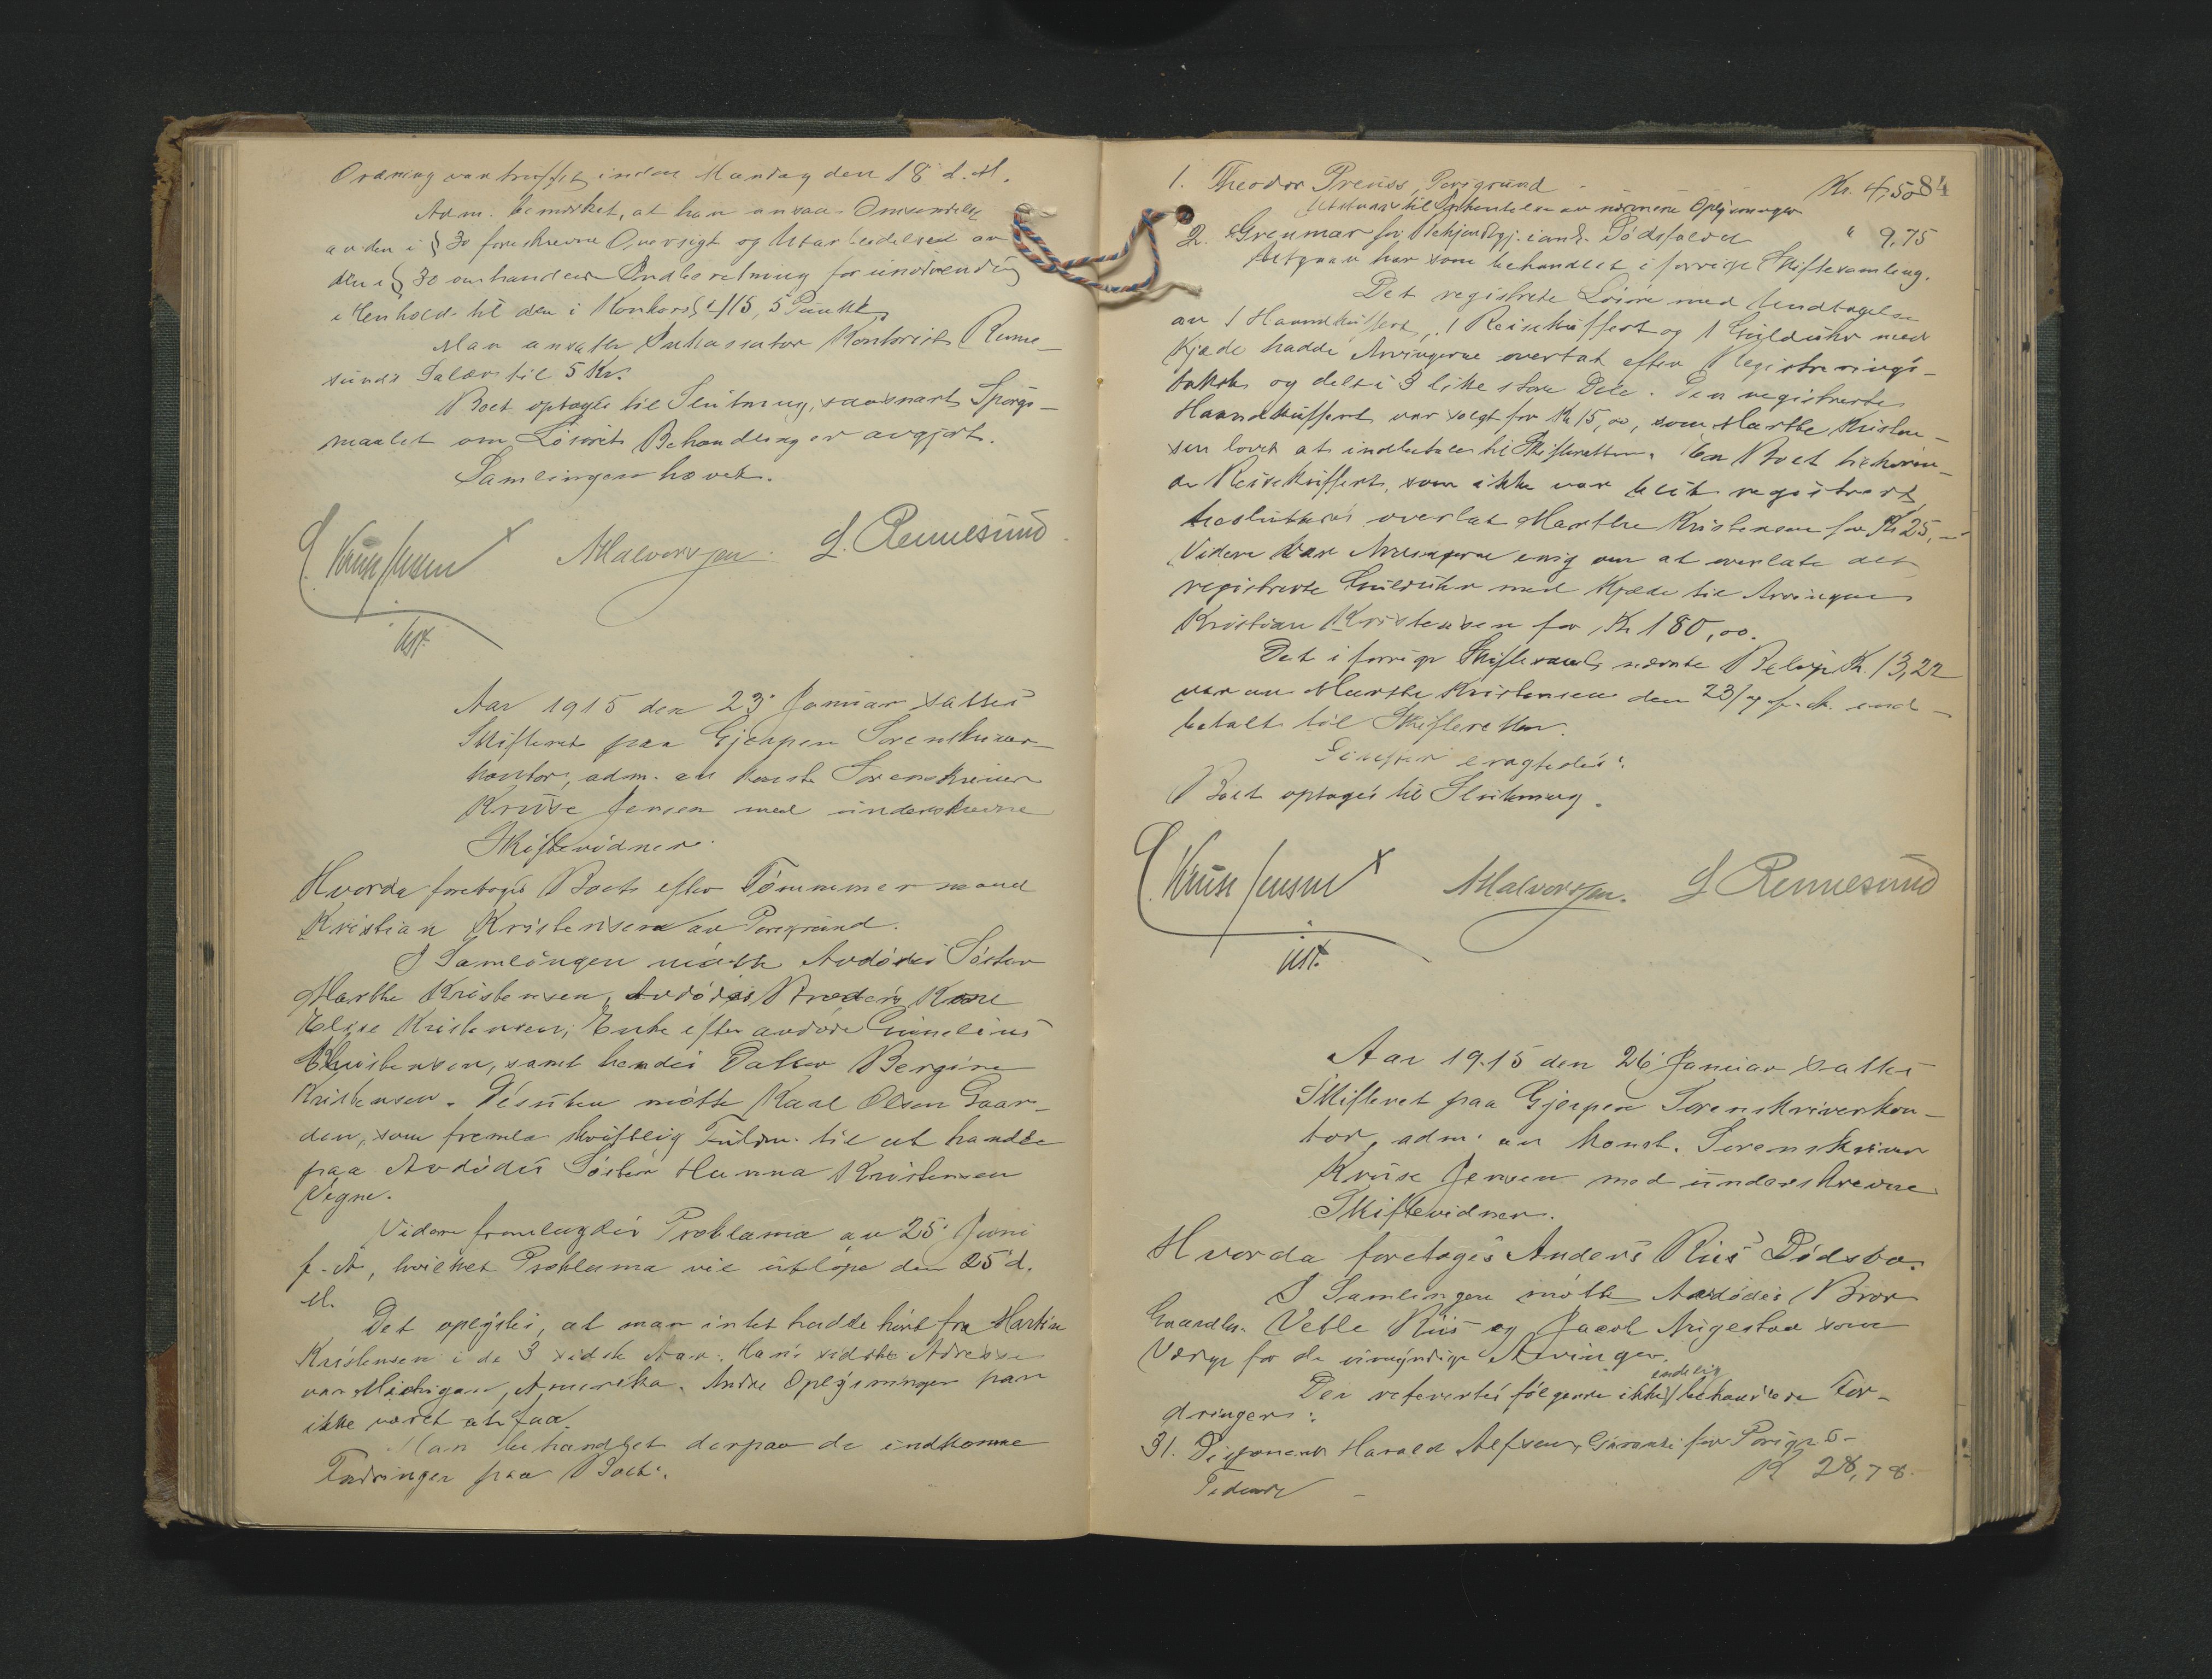 Ordning var truffet inden Mandag den 18 d. M.
Adm. bemerket, at han ansaa Omsendelse
av den i § 30 foreskrevne Oversigt og Utarbeidelsen av
den i § 30 omhandlede Indberetning for unødvendig
i Henhold til den i Konkursl. § 115, 5 Punkt.
Man ansatte Inkassator Kontorist Renne-
sunds Salær til 5 Kr.
Boet optages til Slutning, saasnart Spørgs-
maalet om Løsørets Behandling er avgjort.
Samlingen hævet.
Kruse Jensen AHalvorsen. L. Rennesund
kst.
Aar 1915 den 23' Januar sattes
Skifteret paa Gjerpen Sorenskriver-
kontor, adm. av konst. Sorenskriver
Kruse Jensen med underskrevne
Skiftevidner.
Hvorda foretoges Boet efter Tømmermand
Kristian Kristensen av Porsgrund.
I Samlingen møtte Avdødes Søster
Marthe Kristensen, Avdødes Broders Kone
Elise Kristensen, Enke efter avdøde
Kristensen, samt hendes Datter Bergine
Kristensen. Desuten møtte Karl Olsen Gaar-
den, som fremla skriftlig Fuldm. til at handle
paa Avdødes Søster Hanna Kristensen
Vegne.
Videre fremlagdes Proklama av 25' Juni
f. A, hvilket Proklama vil utløpe den 25' d.
M.
Det oplystes, at man intet hadde hørt fra Martin
Kristensen i de 3 sidste Aar. Hans sidste Adresse
var Michigan, Amerika. Andre Oplysninger har
ikke været at faa.
Man behandlet derpaa de indkomne
Fordringer paa Boet:
1. Theodor Preuss, Porsgrund Kr. 4,50 84
til Indhentelse av nærmere Oplysninger
2. Grenmar for Bekjendtgj. i anl. Dødsfaldet " 9,75
Utgaar her som behandlet i forrige Skiftesamling.
Det registrerte Løsøre med Undtagelse
av 1 Haandkuffert, 1 Reisekuffert og 1 Gulduhr med
Kjæde hadde Arvingerne overtat efter Registrerings-
takst og delt i 3 like store Dele. Den registrerte
Haandkuffert var solgt for Kr 15,00, som Marthe Kristen-
sen lovet at indbetale til Skifteretten. En Boet tilhøren-
de Reisekuffert, som ikke var blit registrert,
besluttedes overlat Marthe Kristensen for Kr 25,-
Videre var Arvingerne enig om at overlate det
registrerte Gulduhr med Kjæde til Arvingen
Kristian Kristensen for Kr 180,00.
Det i forrige Skiftesaml. nævnte Beløp Kr. 13,22
var av Marthe Kristensen den 23/ f. A. ind-
betalt til Skifteretten.
eragtedes:
Boet optages til Slutning.
Kruse Jensen AHalvorsen. L Rennesund
kst.
Aar 1915 den 26' Januar sattes
Skifteret paa Gjerpen Sorenskriverkon-
tor, adm. av konst. Sorenskriver
Kruse Jensen med underskrevne
Skiftevidner.
Hvorda foretoges Anders Riis' Dødsbo.
I Samlingen møtte Avdødes Bror
Gaardbr. Vetle Riis og Jacob som
Værge for de umyndige Arvinger.
Der refertes følgende ikke endelig behandlede For-
dringer:
31. Disponent Harald Alfsen, Garanti for Porsgr.
Kr 28,78.